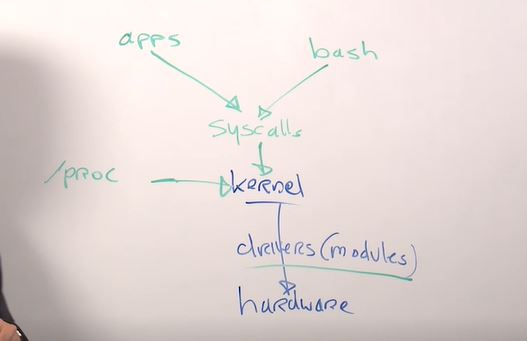 apps
bash
syscalls
/proc
kernel
drivers (modules)
hardware